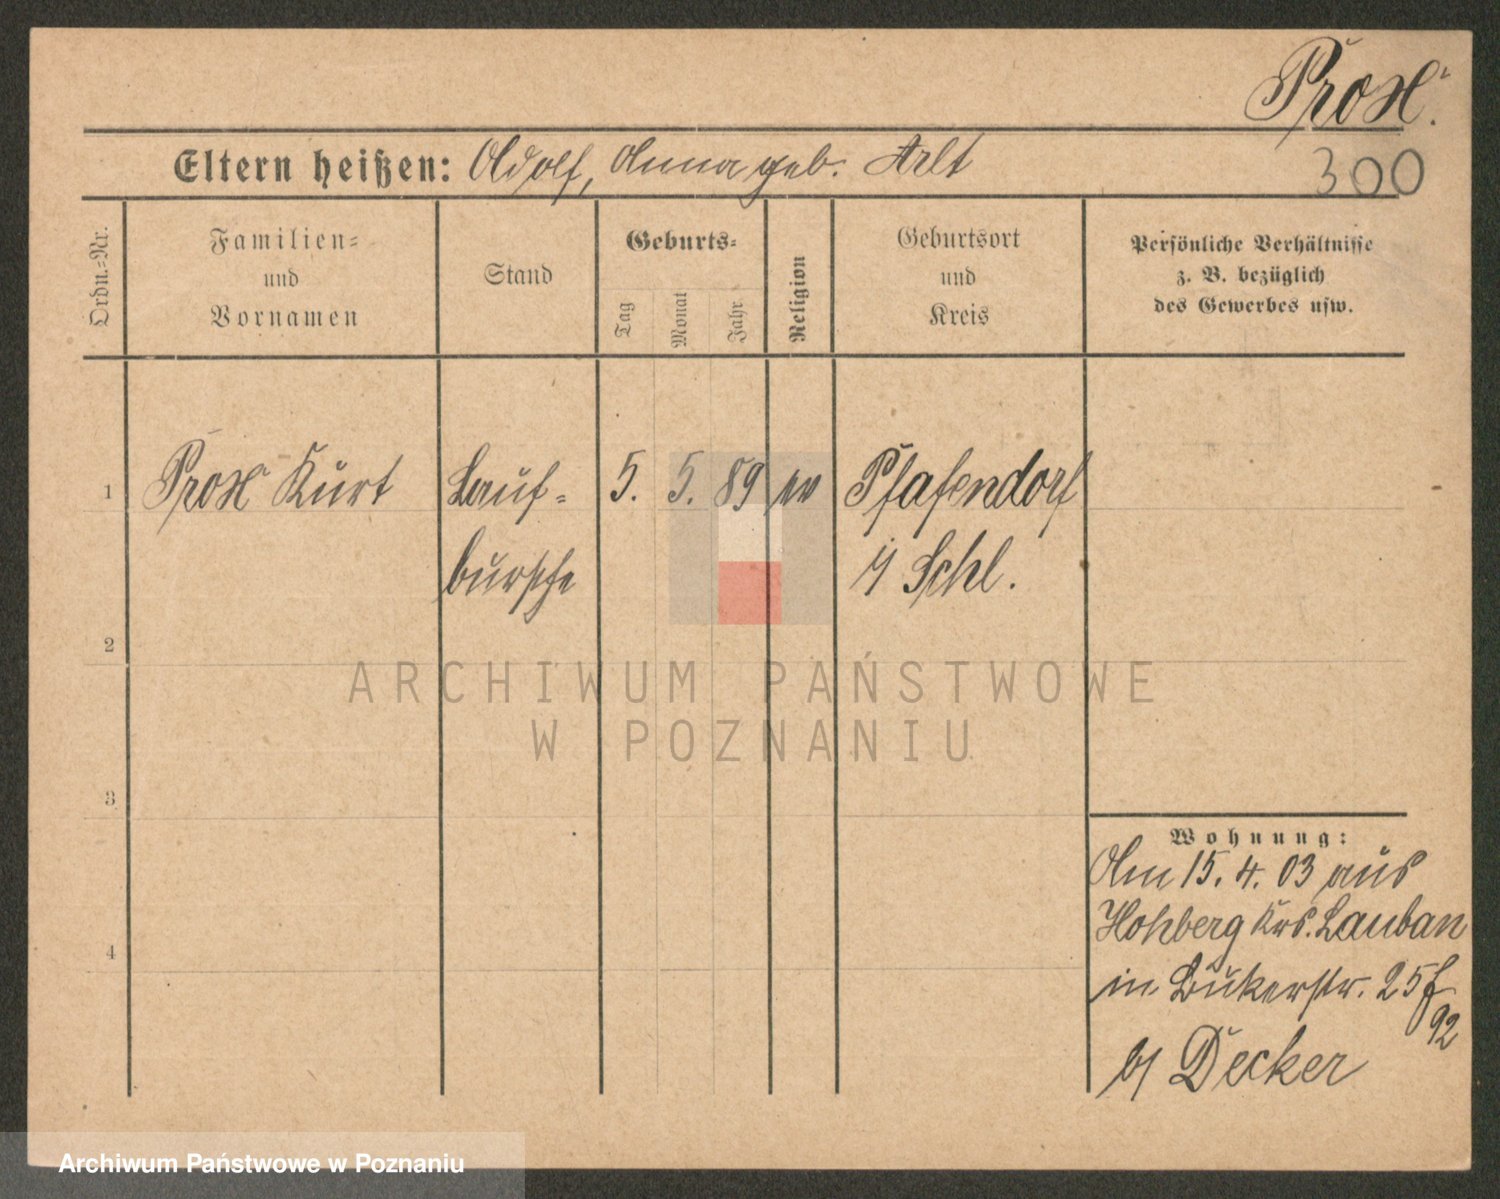 Prox.
Eltern heißen: Adolf, Anna geb. Arlt
300
Ordn.-Nr.
Familien-
und
Vornamen
Stand
Geburts-
Tag
Monat
Jahr
Religion
Geburtsort
und
Kreis
Persönliche Verhältnisse
z. B. bezüglich
des Gewerbes usw.
1
Prox Kurt
Lauf-
bursche
5.
5.
89
ev
Pfafendorf
i/ Schl.
2
3
4
Wohnung:
Am 15. 4. 03 aus
Hohberg Krs. Lauban
in Bukerstr. 25
92
b/ Decker
ARCHIWUM PAŃSTWOWE
W POZNANIU
Archiwum Państwowe w Poznaniu